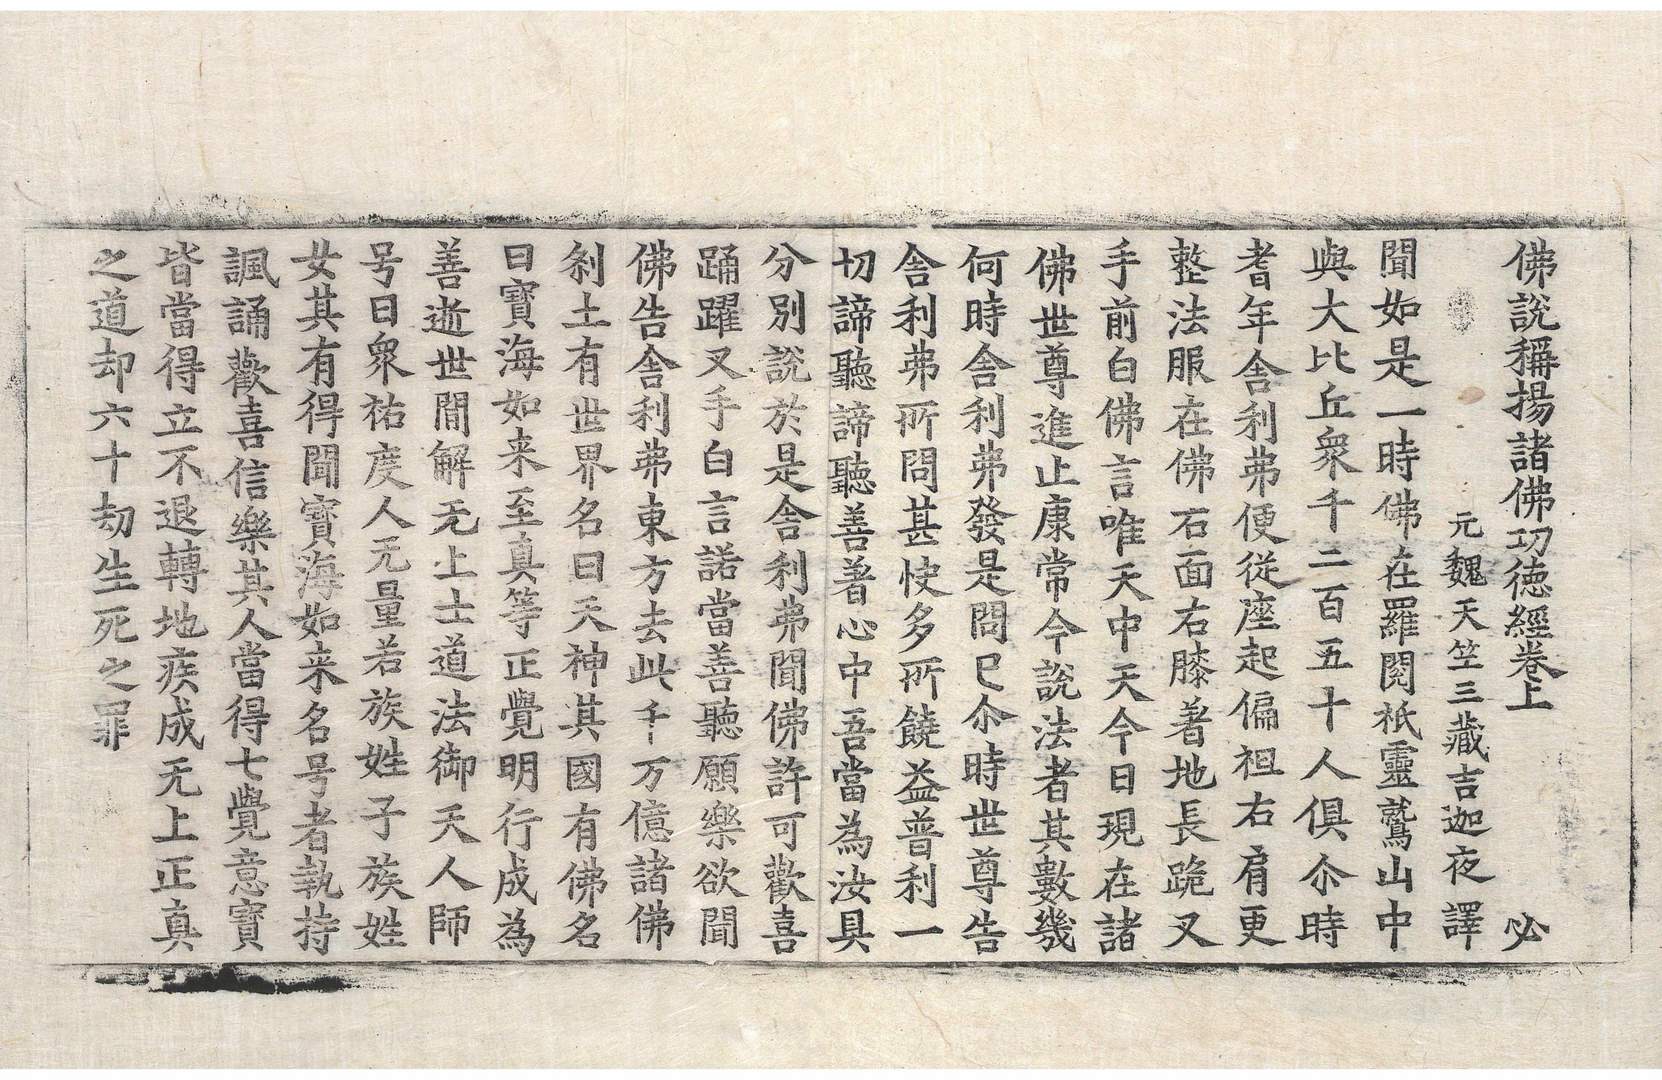 佛說稱揚諸佛功德經卷上 必
元魏天竺三藏吉迦夜譯
聞如是一時佛在羅閱祇靈鷲山中
與大比丘衆千二百五十人俱尒時
耆年舍利弗便從座起偏袒右肩更
整法服在佛右面右膝著地長跪叉
手前白佛言唯天中天今日現在諸
佛世尊進止康常今說法者其數幾
何時舍利弗發是問已尒時世尊告
舍利弗所問甚快多所饒益普利一
切諦聽諦聽善著心中吾當為汝具
分別說於是舍利弗聞佛許可歡喜
踊躍叉手白言諾當善聽願樂欲聞
佛告舍利弗東方去此千万億諸佛
刹土有世界名曰天神其國有佛名
曰寶海如来至真等正覺明行成為
善逝世間解无上士道法御天人師
号曰衆祐度人无量若族姓子族姓
女其有得聞寶海如来名号者執持
諷誦歡喜信樂其人當得七覺意寶
皆當得立不退轉地疾成无上正真
之道却六十劫生死之罪